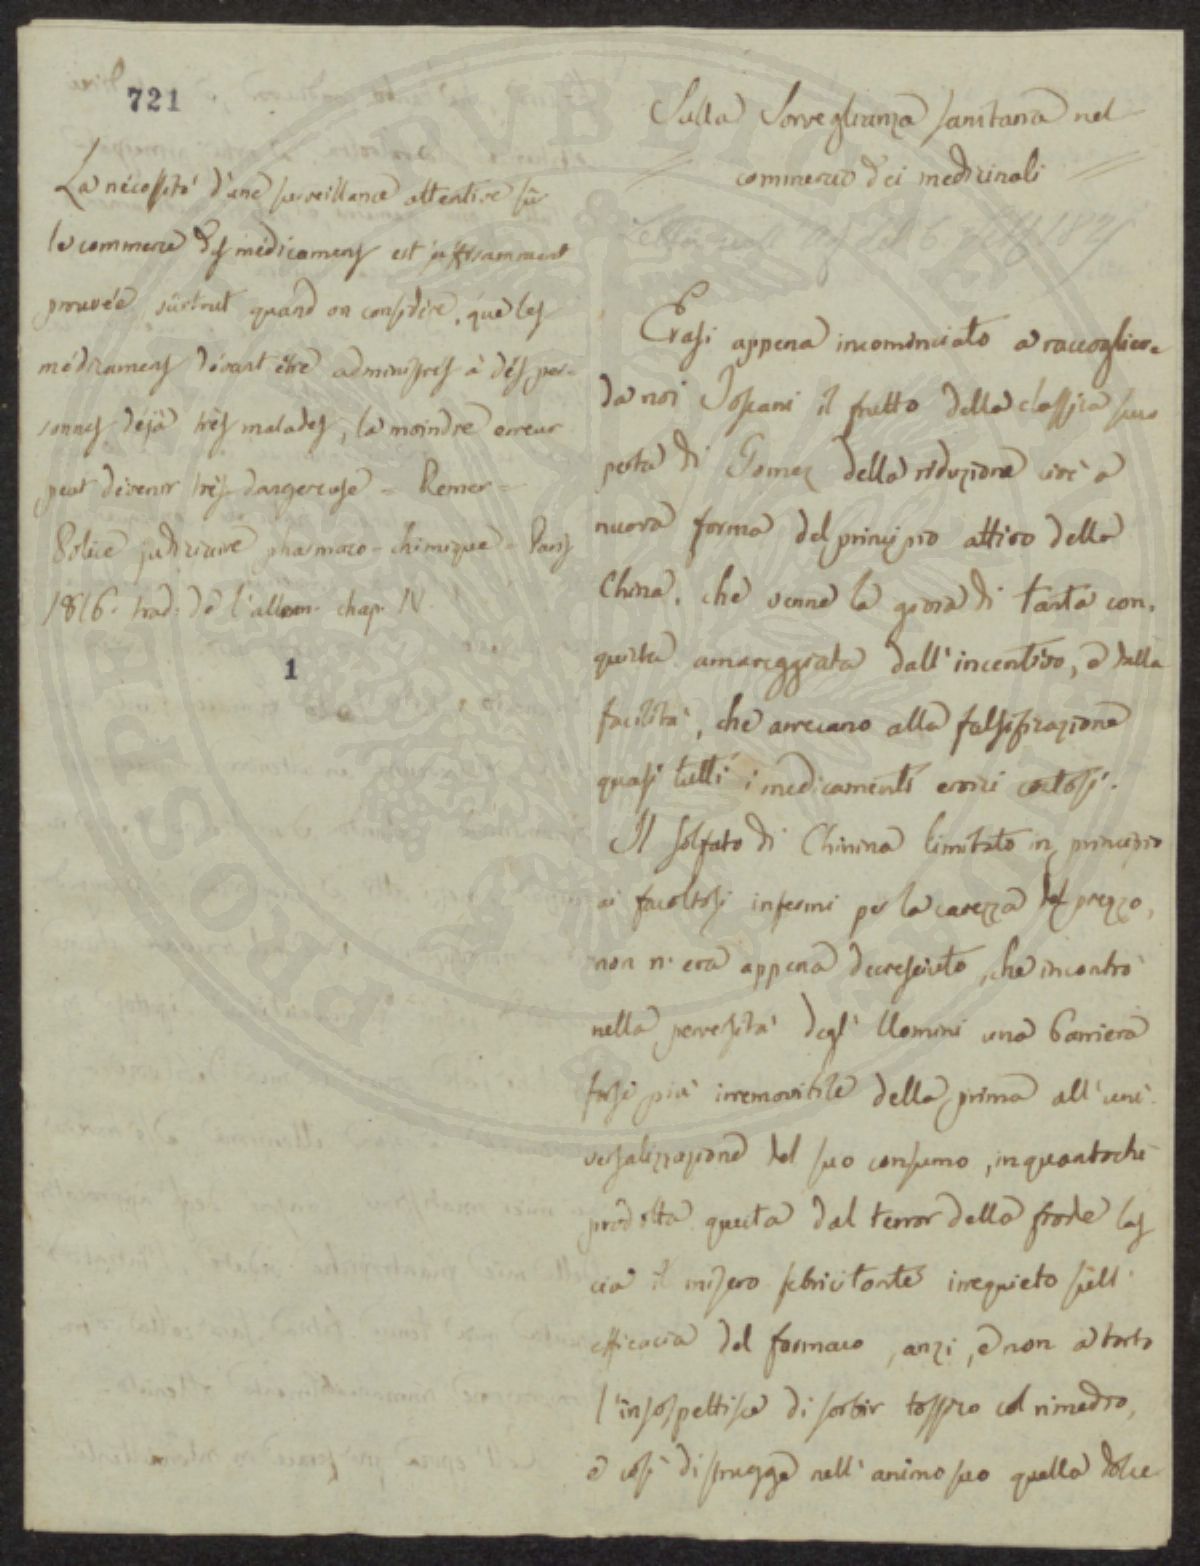 721
La nécessité d'une surveillance attentive sur
le commerce des médicamens est suffisamment
prouvée, surtout quand on considère, que les
médicamens dévant être administrés à des per-
sonnes déjà très malades, la moindre erreur
peut devenir très dangereuse = Remer =
Police judiciaire pharmaco-chimique = Paris
1816. trad. de l'allem. chap. IV.
1
Sulla Sorveglianza sanitaria nel
commercio dei medicinali
Erasi appena incominciato a raccogliere
da noi Toscani il frutto della classica sco
perta di Gomez della riduzione cioè a
nuova forma del principio attivo della
China, che venne la gioia di tanta con-
quista amareggiata dall'incentivo, e dalla
facilità, che arrecano alla falsificazione
quasi tutti i medicamenti eroici costosi.
Il Solfato di Chinina limitato in principio
ai facoltosi infermi per la carezza del prezzo,
non n'era appena decresciuto, che incontrò
nella perversità degl'Uomini una barriera
forse più irremovibile della prima all'uni-
versalizzazione del suo consumo, inquantochè
prodotta questa dal terror della frode las
cia il misero febricitante irrequieto sull'
efficacia del farmaco, anzi, e non a torto
l'insospettisce di sorbir tossico col rimedio,
e così distrugge nell'animo suo quella dolce
PVBLIC